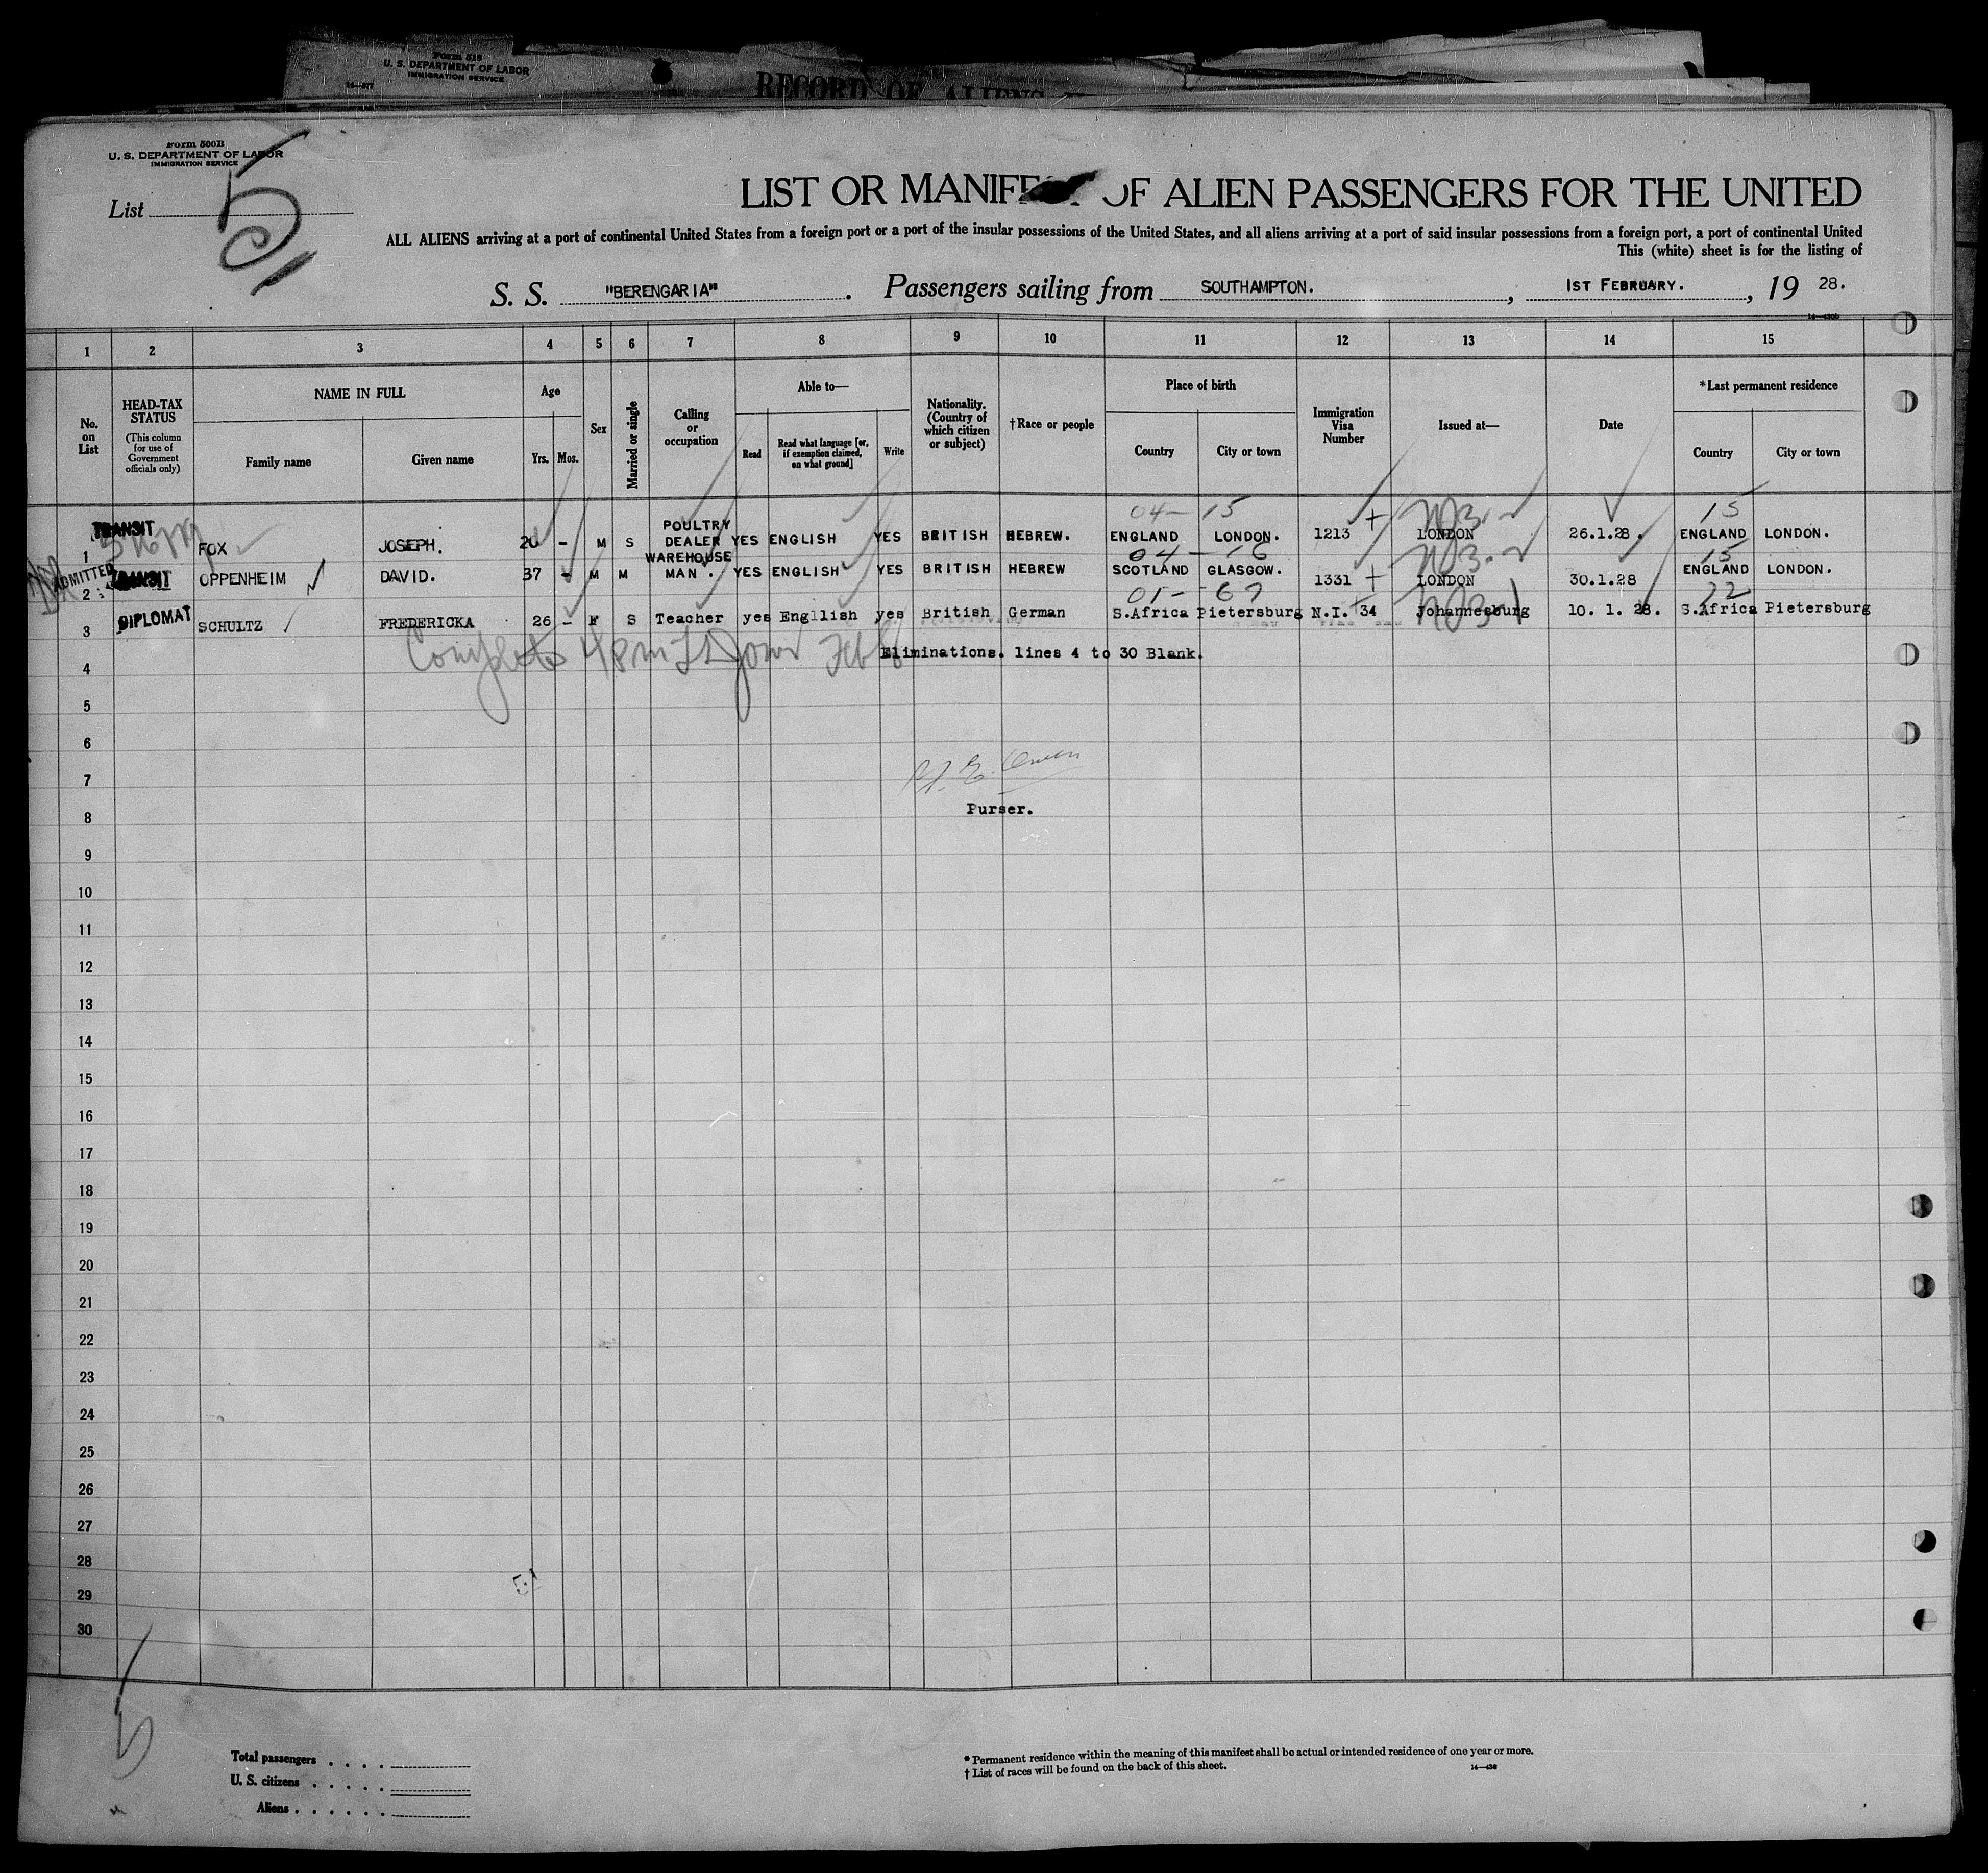 Form 515
U. S. DEPARTMENT OF LABOR
IMMIGRATION SERVICE
14—577
RECORD OF ALIENS
Form 500B
U. S. DEPARTMENT OF LABOR
IMMIGRATION SERVICE
List
5
LIST OR MANIFE OF ALIEN PASSENGERS FOR THE UNITED
ALL ALIENS arriving at a port of continental United States from a foreign port or a port of the insular possessions of the United States, and all aliens arriving at a port of said insular possessions from a foreign port, a port of continental United
This (white) sheet is for the listing of
S. S. "BERENGARIA". Passengers sailing from SOUTHAMPTON. , 1ST FEBRUARY. , 19 28.
1 2 3 4 5 6 7 8 9 10 11 12 13 14 15
No. on List
HEAD-TAX STATUS (This column for use of Government officials only)
NAME IN FULL
Family name Given name
Age
Yrs. Mos.
Sex
Married or single
Calling or occupation
Able to—
Read Read what language [or, if exemption claimed, on what ground] Write
Nationality. (Country of which citizen or subject)
†Race or people
Place of birth
Country City or town
Immigration Visa Number
Issued at—
Date
*Last permanent residence
Country City or town
04— 15 15
1 TRANSIT FOX JOSEPH. 20 – M S POULTRY DEALER YES ENGLISH YES BRITISH HEBREW. ENGLAND LONDON. 1213 LONDON 26.1.28. ENGLAND LONDON.
04— 16 15
2 ADMITTED TRANSIT OPPENHEIM DAVID. 37 – M M WAREHOUSE MAN. YES ENGLISH YES BRITISH HEBREW SCOTLAND GLASGOW. 1331 LONDON 30.1.28 ENGLAND LONDON.
01— 67 22
3 DIPLOMAT SCHULTZ FREDERICKA 26 – F S Teacher yes Engilish yes British German S.Africa Pietersburg N.I. 34 Johannesburg 10. 1. 28. S.Africa Pietersburg
4 Eliminations. lines 4 to 30 Blank.
5
6
7
8 Purser.
9
10
11
12
13
14
15
16
17
18
19
20
21
22
23
24
25
26
27
28
29
30
Total passengers . . . .
U. S. citizens . . . . .
Aliens . . . . . .
* Permanent residence within the meaning of this manifest shall be actual or intended residence of one year or more.
† List of races will be found on the back of this sheet.